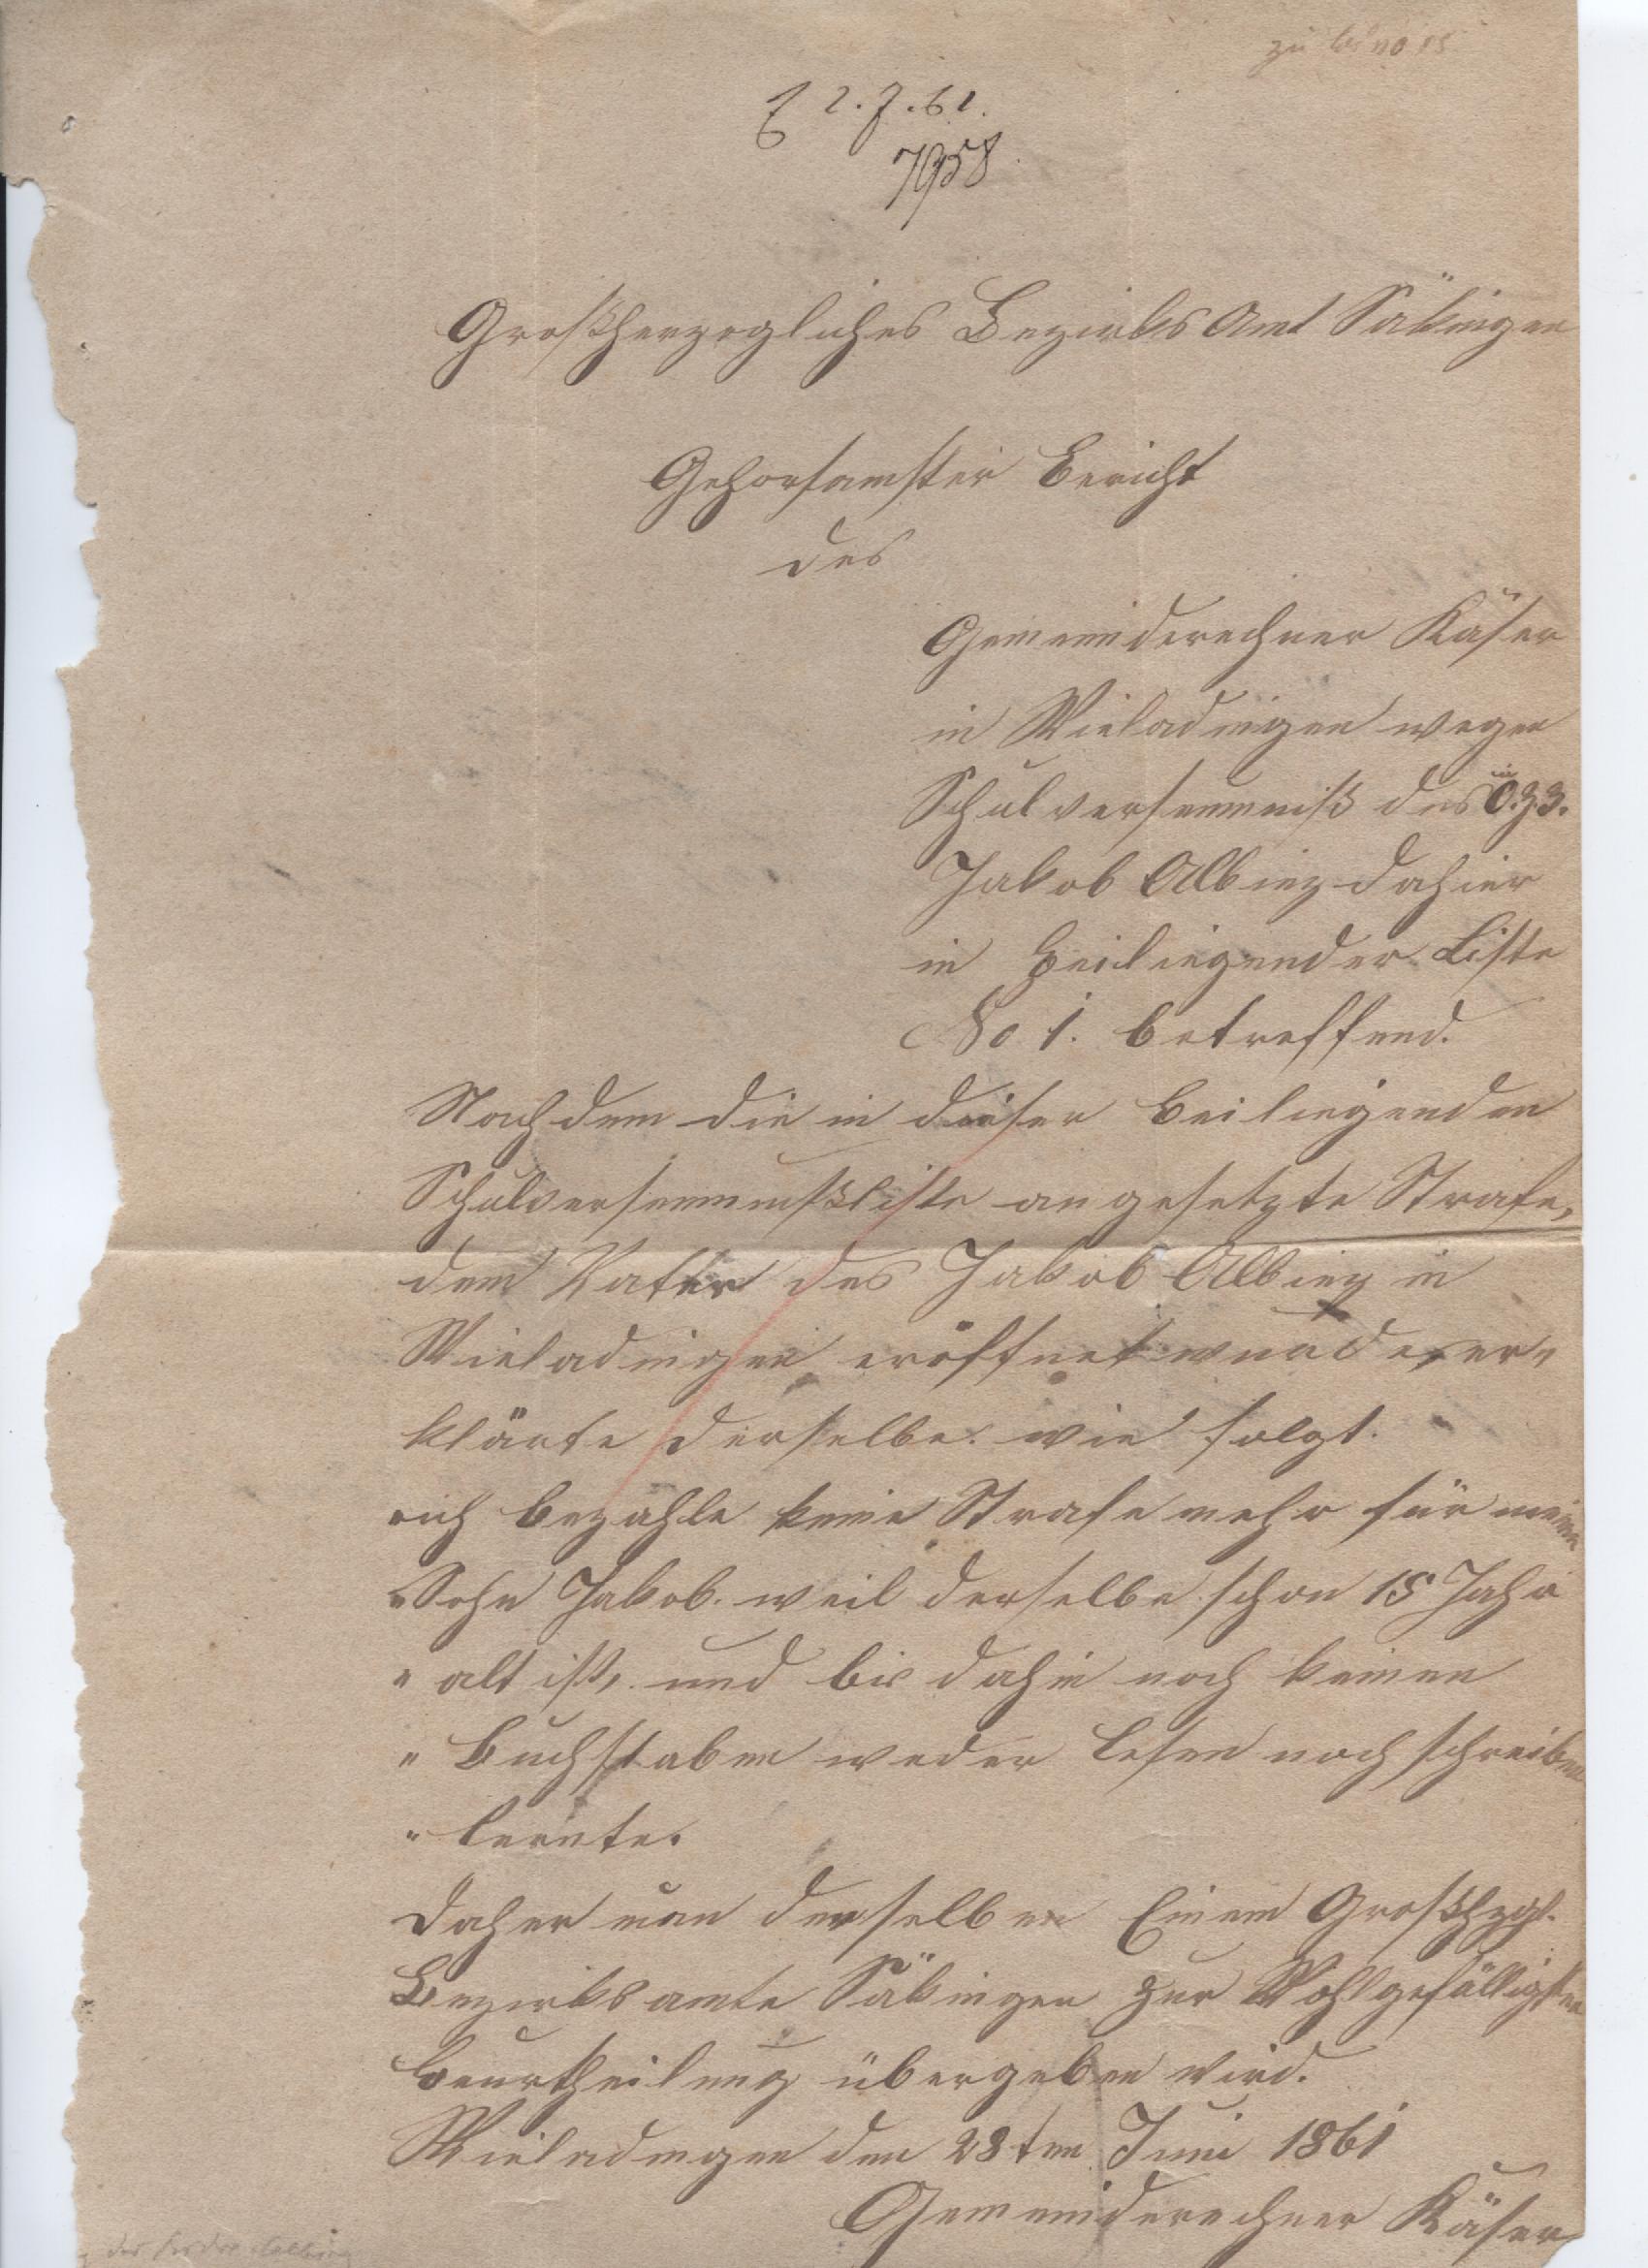 E 2.7.61.
7958.
Großherzogliches Bezirks Amt Säkingen
Gehorsamster Bericht
des
Gemeinderechner Käser
in Wieladingen wegen
Schulversemmniß des in O.Z 3.
Jakob Albiez dahier
in beiliegender Liste
No 1. betreffend.
Nachdem die in dieser beiliegenden
Schulversemmnißliste angesetzte Strafe,
dem Vater des Jakob Albiez in
Wieladingen eröffnet wurde, er„
klärte derselbe wie folgt.
„ich bezahle keine Strafe mehr für meinen
„Sohn Jakob. weil derselbe schon 15 Jahr
„ alt ist, und bis dahin noch keinen
„ Buchstaben weder lesen noch schreiben
„ lernte.
Daher man denselben Einem Großhzgl.
Bezirksamte Säkingen zur Wohlgefälligsten
beurtheilung übergeben wird.
Wieladingen den 28ten Juni 1861
Gemeinderechner Käser